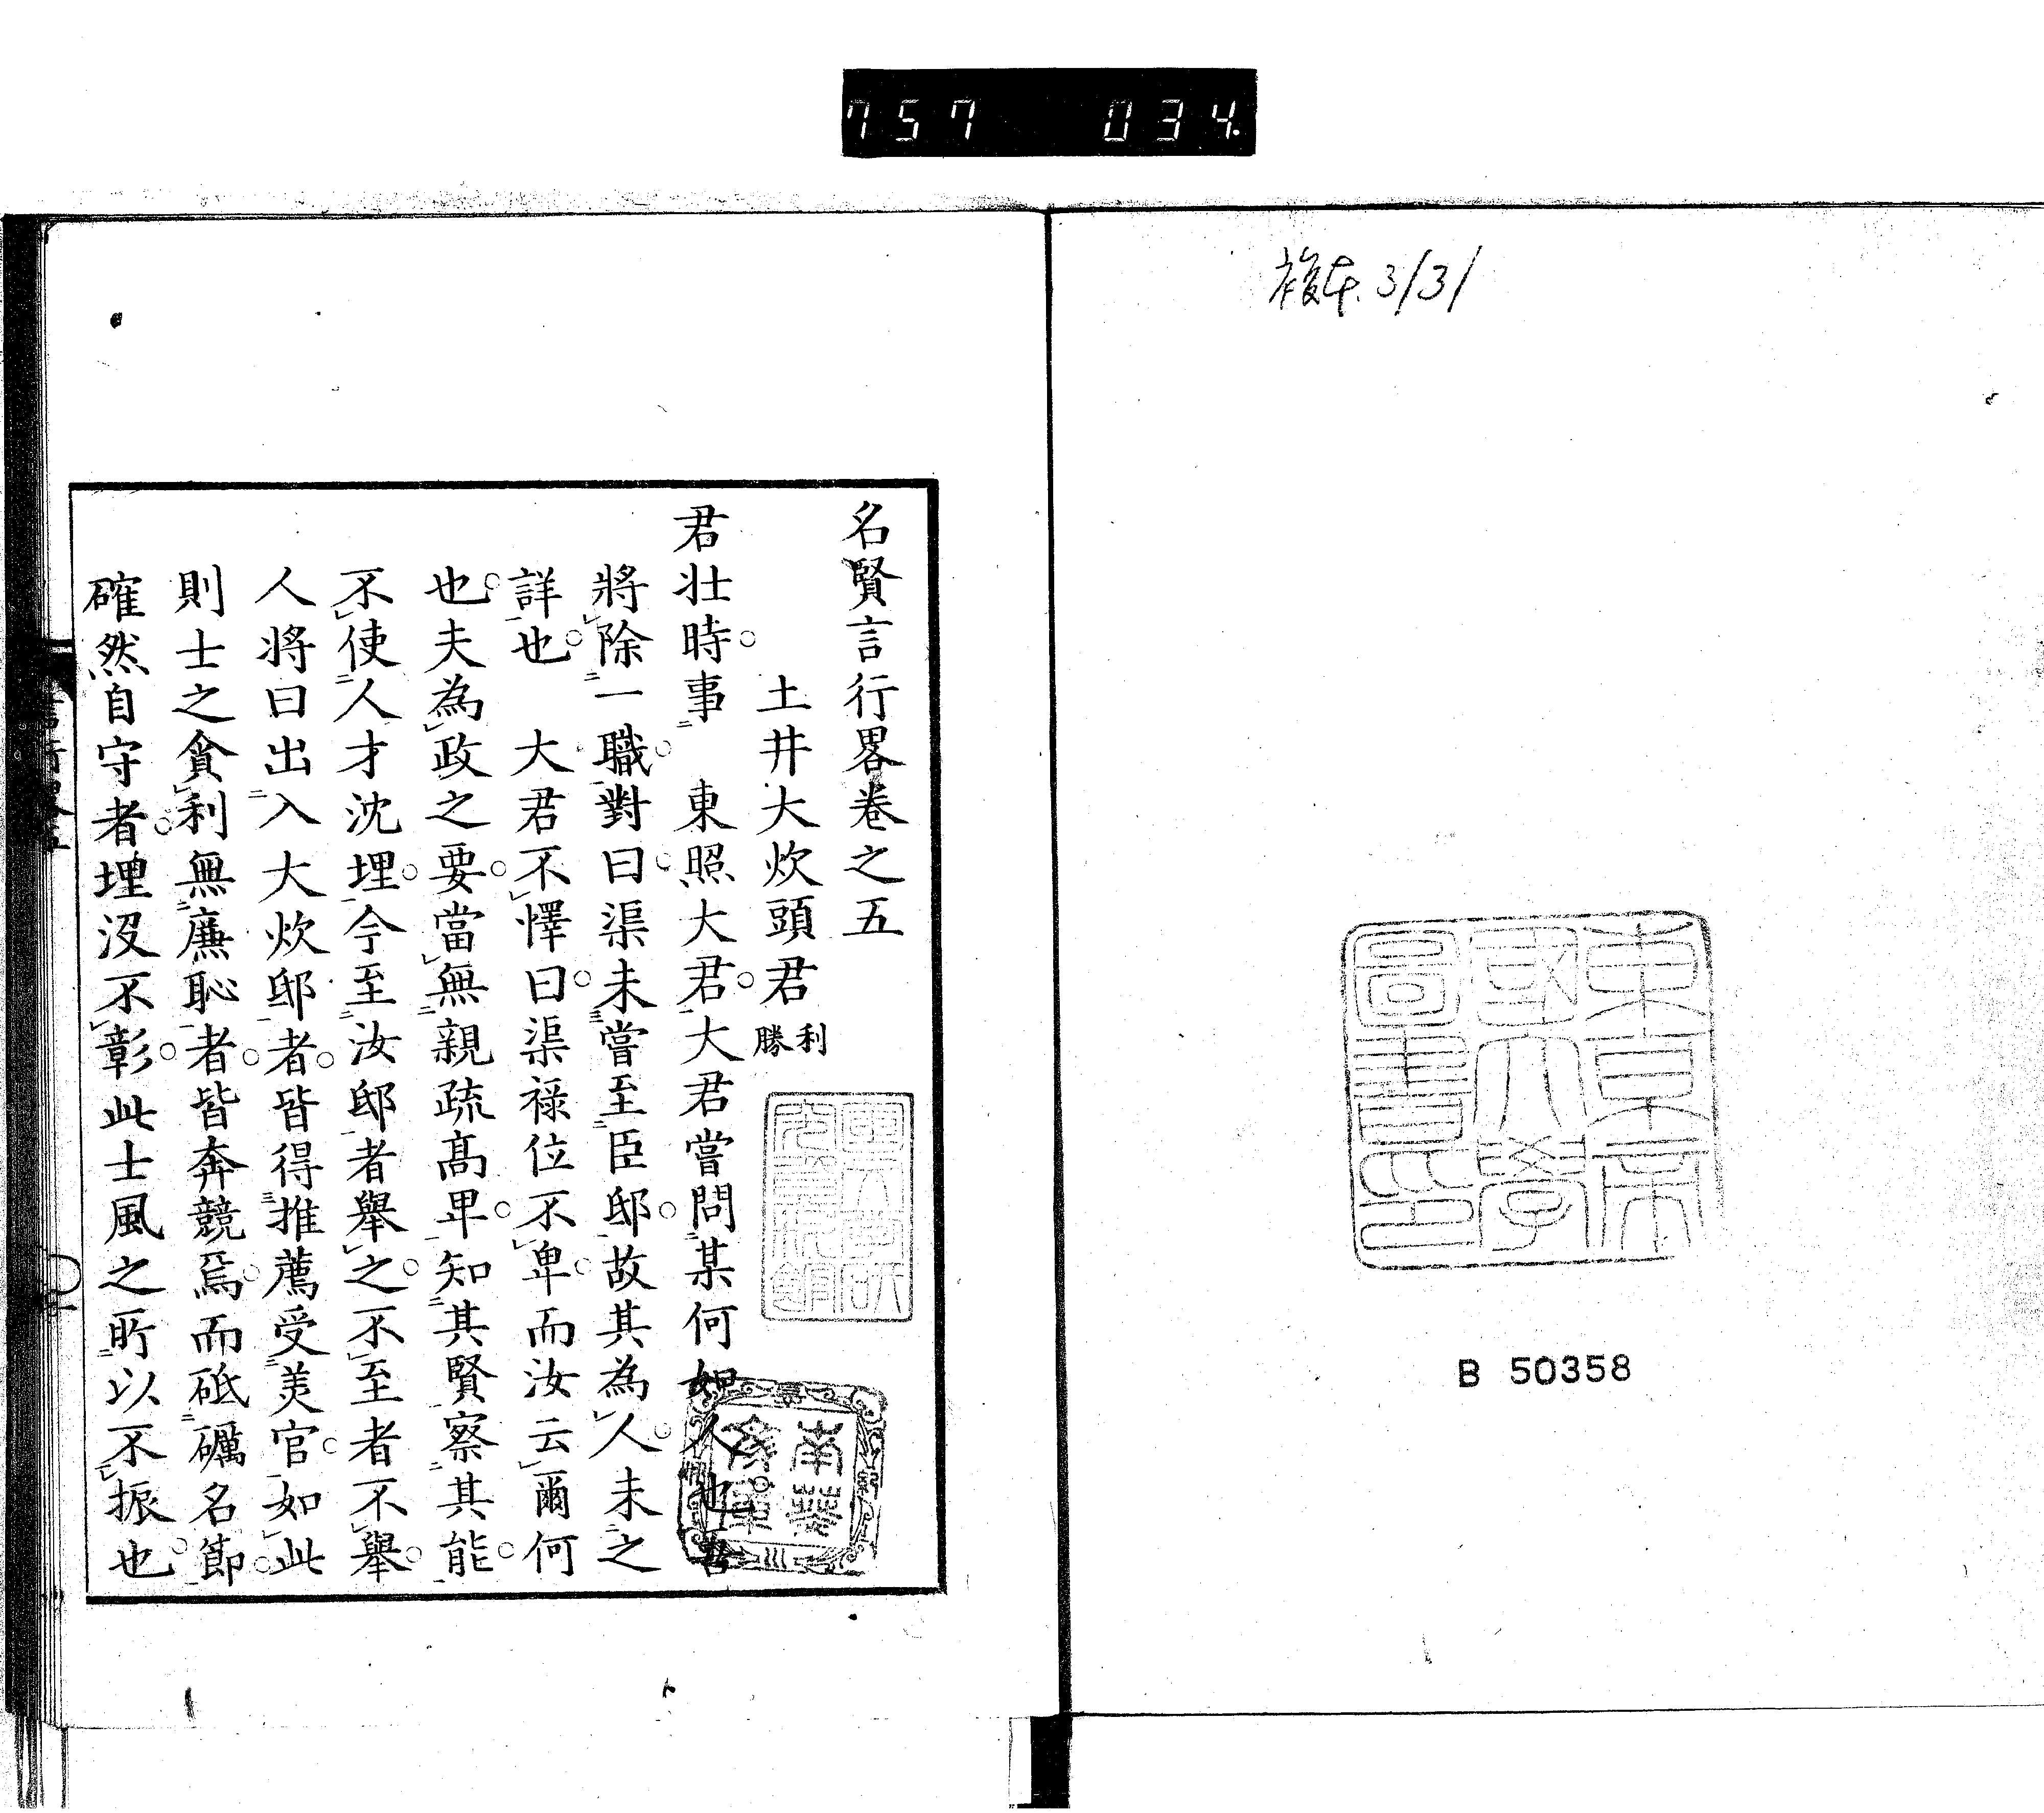 757 034
複本 3131
東京帝
國大學
圖書印
B 50358
名賢言行畧卷之五
土井大炊頭君 利勝
君壯時事 東照大君大君嘗問某何如人也君
將除一職對曰渠未嘗至臣邸故其為人未之
詳也 大君不懌曰渠祿位不卑而汝云爾何
也夫為政之要當無親疏高卑知其賢察其能
不使人才沈埋今至汝邸者舉之不至者不舉
人將曰出入大炊邸者皆得推薦受美官如此
則士之貪利無廉恥者皆奔競焉而砥礪名節
確然自守者埋沒不彰此士風之所以不振也
南葵
文庫